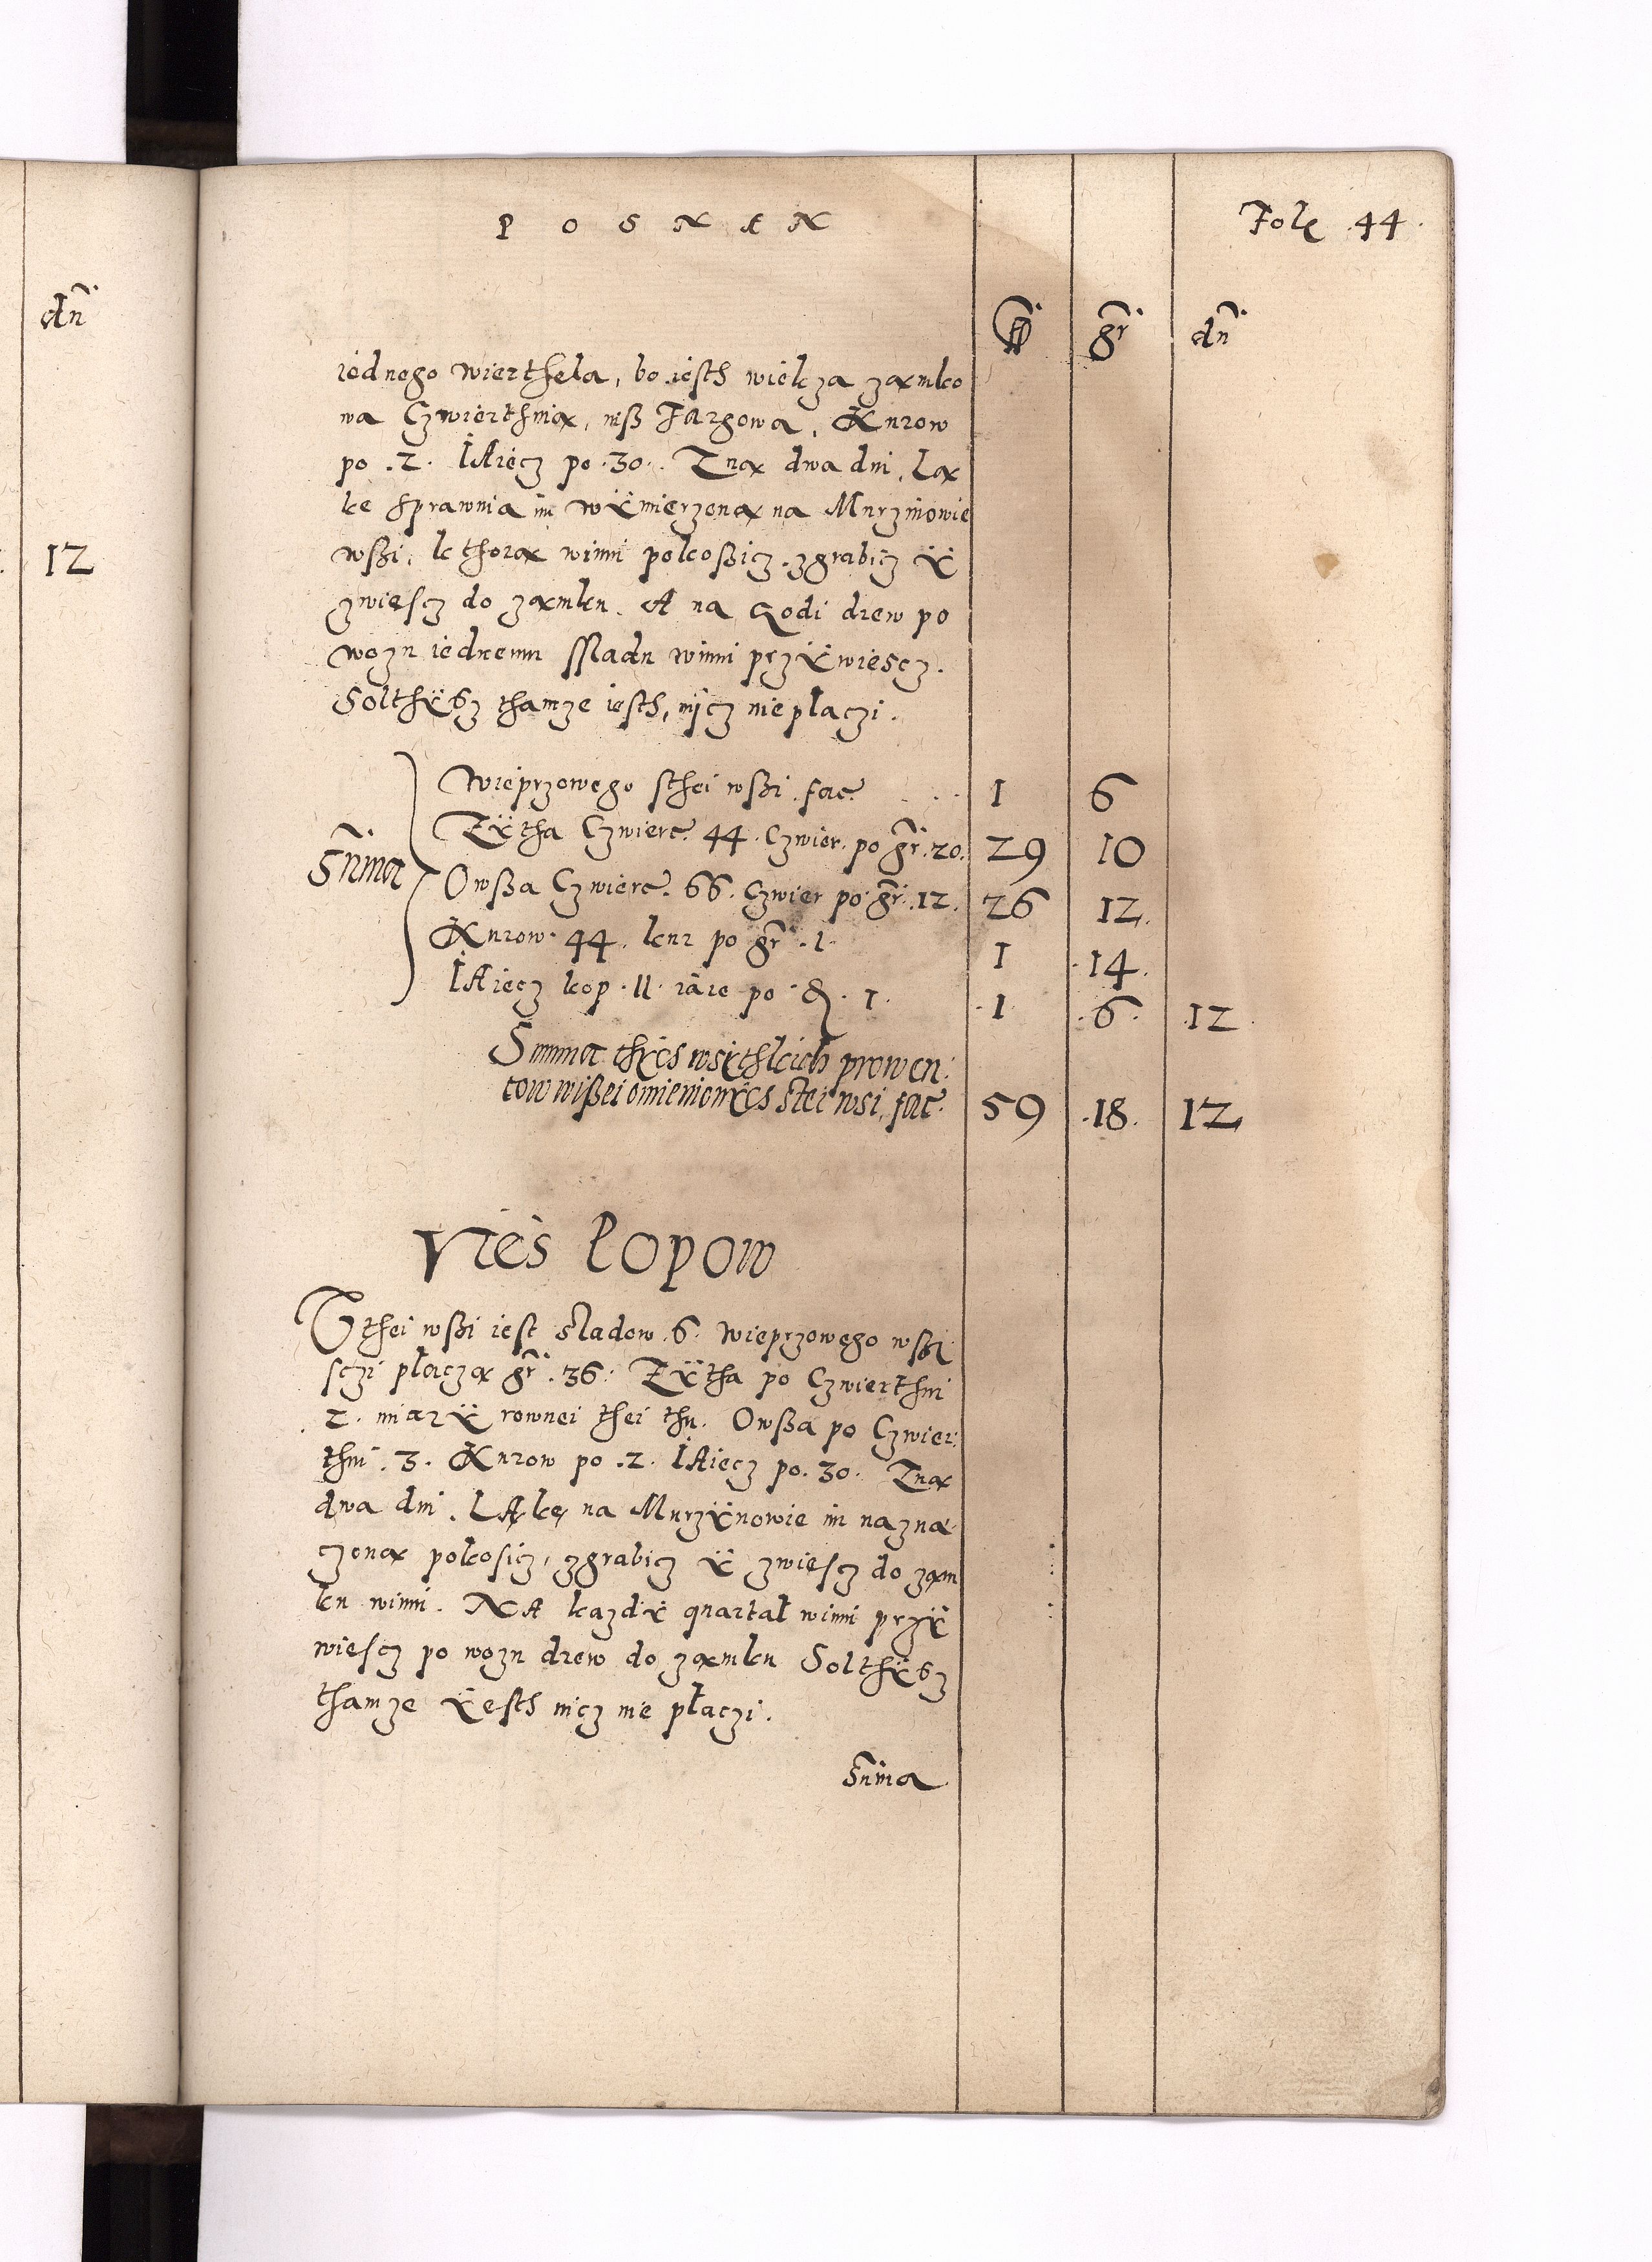 P O S N E N
Fole 44.
dn̄
ff gr̄ dn̄
iednego wierthela, bo iesth wielcza zamko
wa Czwierthnia, niß Targowa, Kurow
po .2. IAiecz po .30. Tną dwa dni, Lą
kę sprawnia im wÿmierzoną na Murzinowie
12
wßi, kthorą winni pokoßicz, zgrabicz ÿ
zwiescz do zamku. A na Godi drew po
wozu iednemu Sladu winni przÿwiescz.
Solthÿsz thamze iesth, nicz nie płaczi.
Wieprzowego sthei wßi fac. 1 6
Zÿtha Czwierc. 44. Czwier. po gr̄. 20. 29 10
Sūma
Owßa Czwierc. 66. Czwier po gr̄. 12. 26 12
Kurow. 44. kur po gr̄ .1. 1 14
IAiecz kop .11. iāie po .d. 1. 1 6 12
Summa thÿch wsÿthkich prowen:
tow wißei omienionÿch stei wsi, fac. 59 18 12
Wies Lopow
W thei wßi iest sladow .6. Wieprzowego wßi
sczi płaczą gr̄. 36. Zÿtha po Czwierthni
2. miarÿ rownei thei thu. Owßa po Czwier:
thni .3. Kurow po .2. IAiecz po .30. Tną
dwa dni. LAkę na Murzÿnowie im nazna
czoną pokosicz, zgrabicz ÿ zwiescz do zam
ku winni. NA kazdÿ quartał winni przÿ
wiescz po wozu drew do zamku Solthÿsz
thamze ÿesth nicz nie płaczi.
Sūma